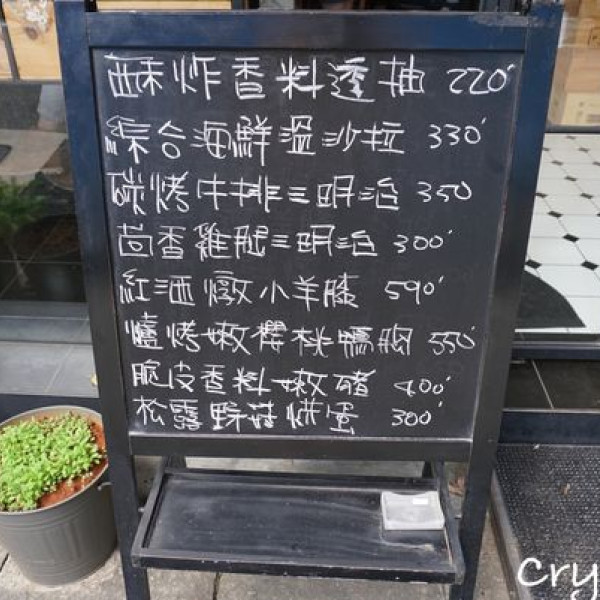 酥炸香料透抽 220'
綜合海鮮溫沙拉 330'
碳烤牛排三明治 350
茴香雞腿三明治 300'
紅酒燉小羊膝 590'
爐烤嫩櫻桃鴨胸 550'
脆皮香料嫩豬 400'
松露野菇烘蛋 300'
Cry